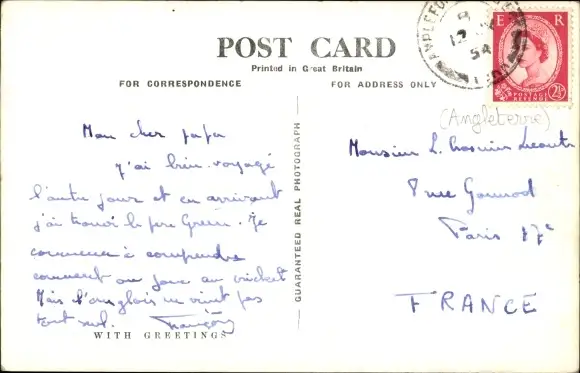 POST CARD
Printed in Great Britain
FOR CORRESPONDENCE
FOR ADDRESS ONLY
E R
POSTAGE
REVENUE
2½
12
54
(Angleterre)
Mon cher papa
J'ai bien voyagé
l'autre jour et en arrivant
j'ai trouvé le père Green. Je
commence à comprendre
comment on joue au cricket
Mais l'anglais ne vient pas
tout seul. François
WITH GREETINGS
GUARANTEED REAL PHOTOGRAPH
Monsieur L.
rue Gounod
Paris 17e
FRANCE